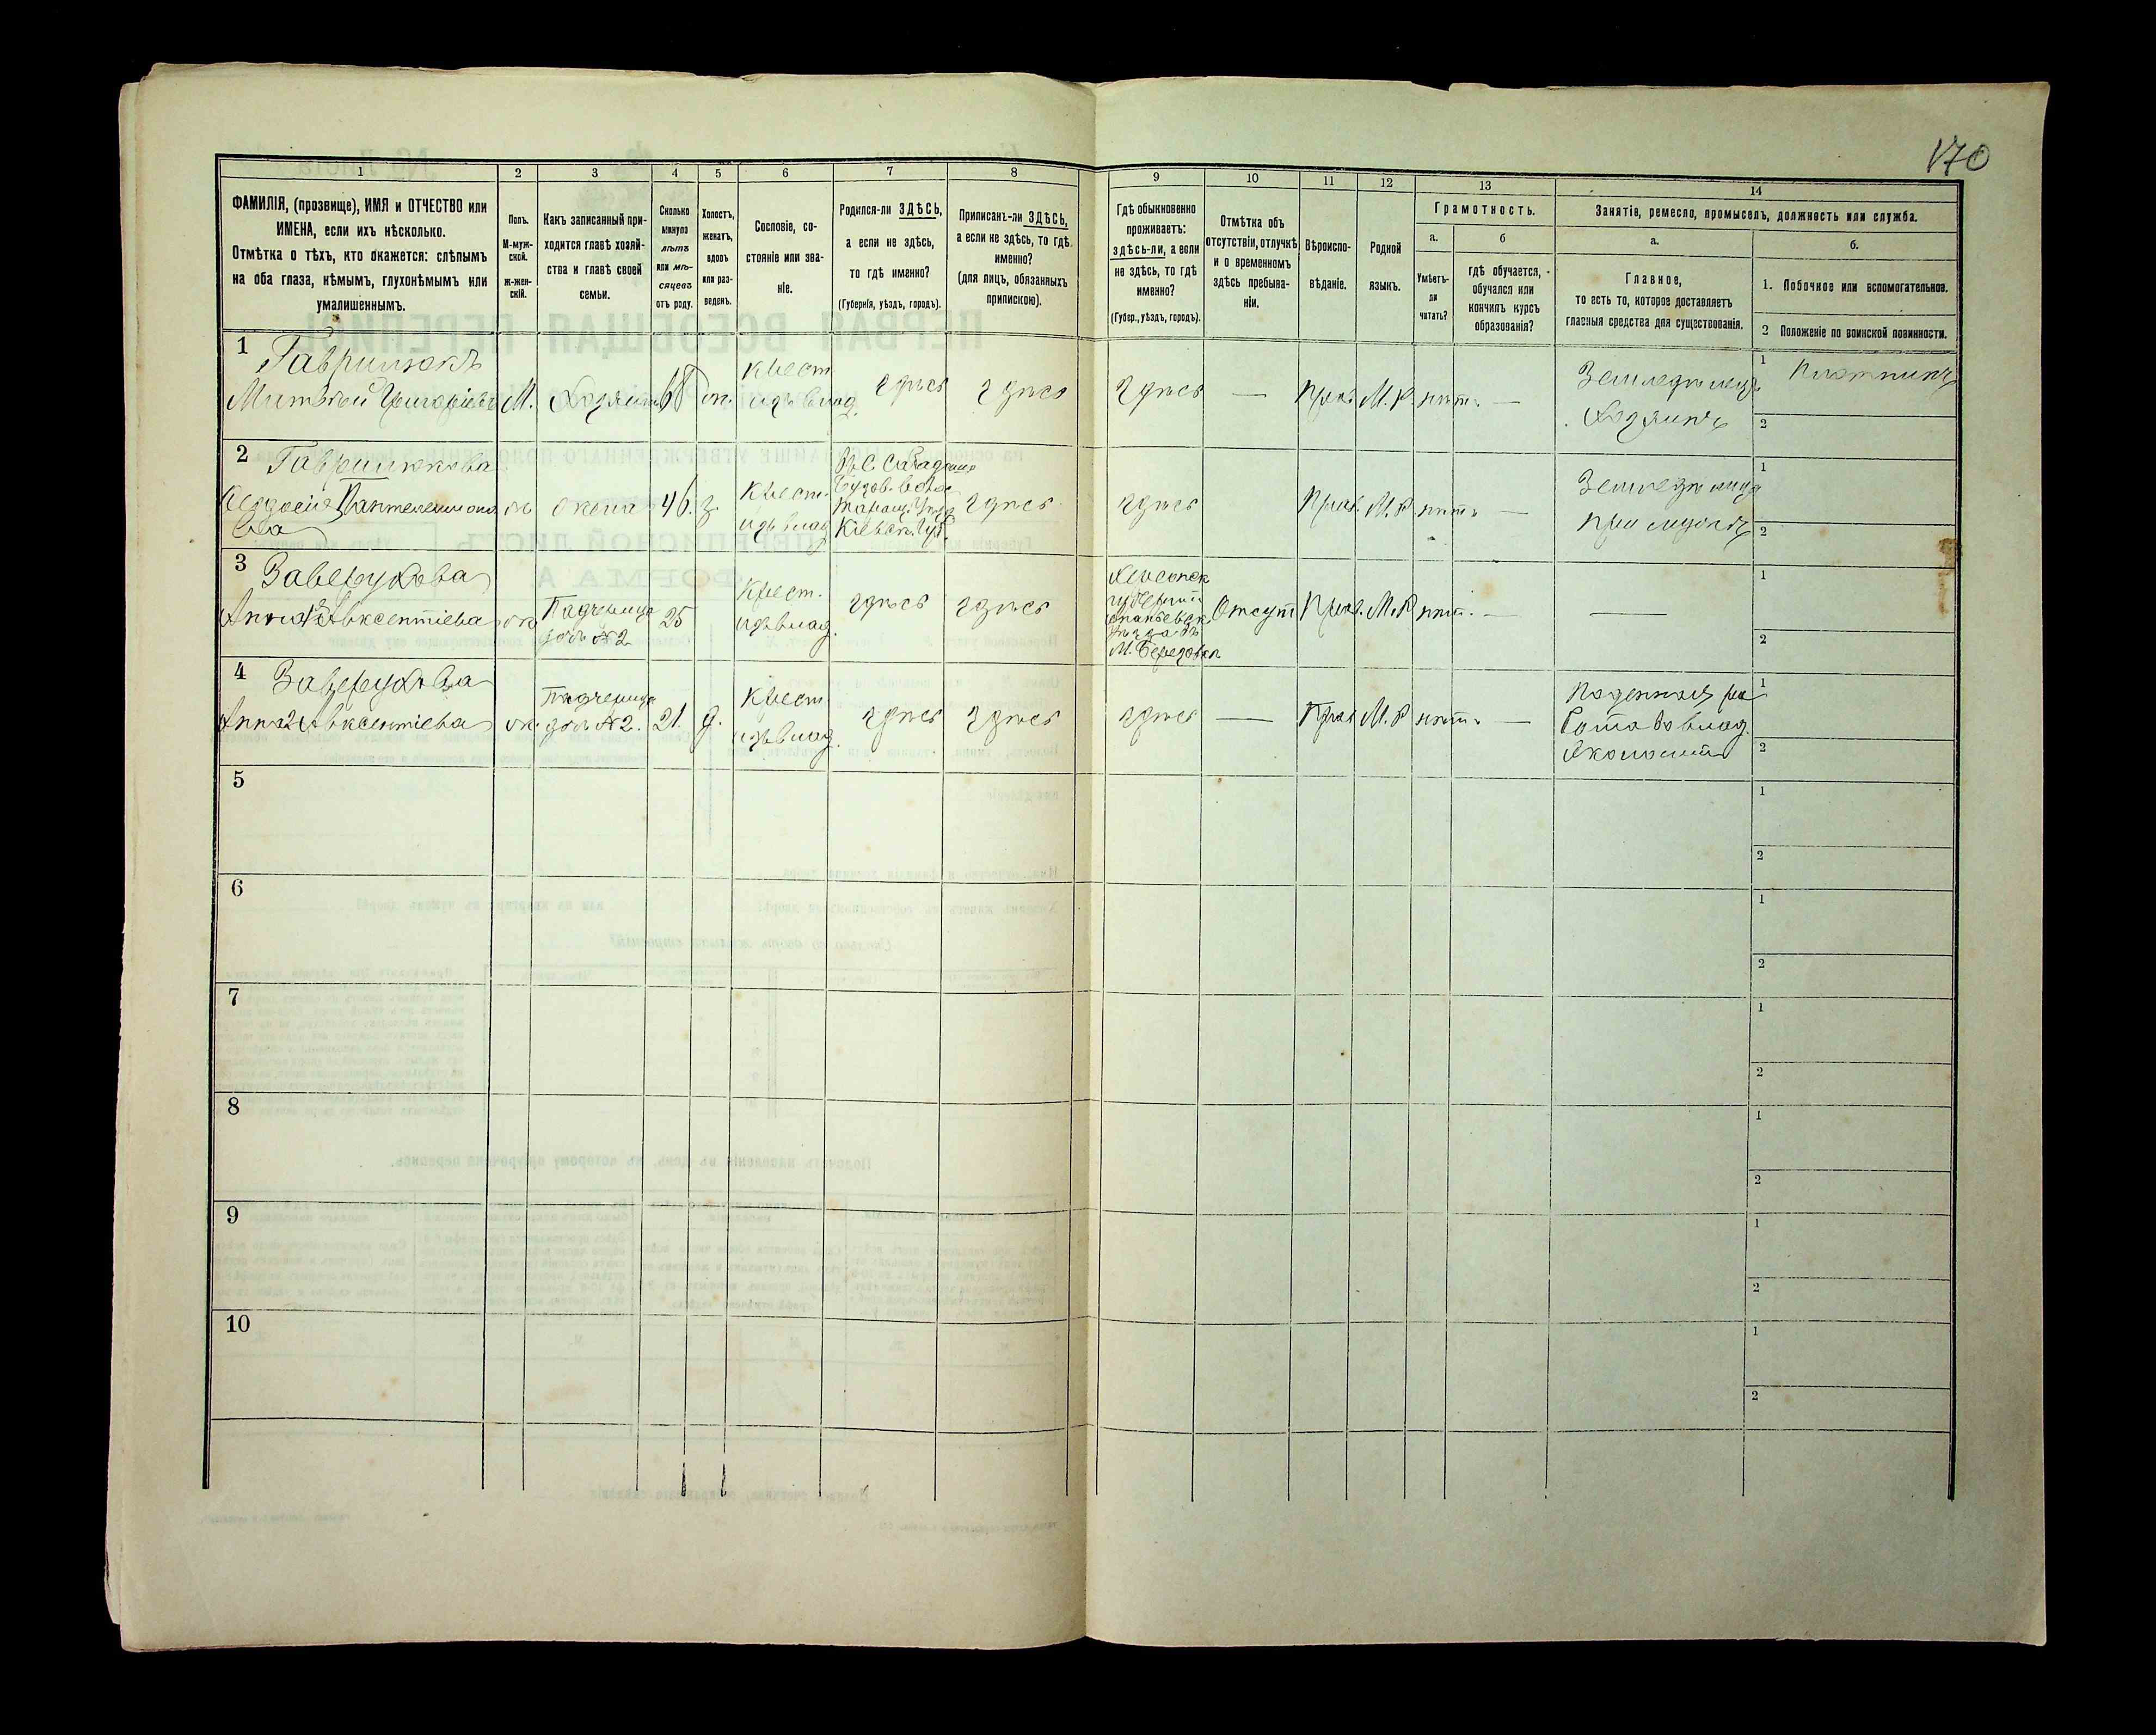 170
1
2
3
4
5
6
7
8
9
10
11
12
13
14
ФАМИЛІЯ, (прозвище), ИМЯ и ОТЧЕСТВО или
ИМЕНА, если ихъ нѣсколько.
Отмѣтка о тѣхъ, кто окажется: слѣпымъ
на оба глаза, нѣмымъ, глухонѣмымъ или
умалишеннымъ.
Полъ.
М-муж-
ской.
Ж-жен-
скій.
Какъ записанный при-
ходится главѣ хозяй-
ства и главѣ своей
семьи.
Сколько
минуло
лѣтъ
или мѣ-
сяцевъ
отъ роду.
Холостъ,
женатъ,
вдовъ
или раз-
веденъ.
Сословіе, со-
стояніе или зва-
ніе.
Родился-ли ЗДѢСЬ,
а если не здѣсь,
то гдѣ именно?
(Губернія, уѣздъ, городъ).
Приписанъ-ли ЗДѢСЬ,
а если не здѣсь, то гдѣ
именно?
(для лицъ, обязанныхъ
припискою).
Гдѣ обыкновенно
проживаетъ:
здѣсь-ли, а если
не здѣсь, то гдѣ
именно?
(Губер., уѣздъ, городъ).
Отмѣтка объ
отсутствіи, отлучкѣ
и о временномъ
здѣсь пребыва-
ніи.
Вѣроиспо-
вѣданіе.
Родной
языкъ.
Грамотность.
а.
Умѣетъ-
ли
читать?
б
гдѣ обучается,
обучался или
кончилъ курсъ
образованія?
Занятіе, ремесло, промыселъ, должность или служба.
а.
Главное,
то есть то, которое доставляетъ
главныя средства для существованія.
б.
1. Побочное или вспомогательное.
2 Положеніе по воинской повинности.
1 Гаврилюкъ
Митрофай Григоріевъ М. Хозяинъ 68 ж.
Крест.
изъ влад.
здѣсь здѣсь здѣсь — Прав. М.Р. нѣтъ —
Земледѣлецъ
Хозяинъ
1 Плотникъ
2
2 Гаврилюкова
Феодосія Пантелеимоно
ва
ж жена 46. з.
Крест.
изъ влад
Кіевск. Губ.
здѣсь
здѣсь Прав. М.Р. нѣтъ
Земледѣлица
при мужѣ
1
2
3 Заверухова
Анна 1я Авксентіева ж.
Падчерица
дочь №2
25
Крест.
изъ влад.
здѣсь здѣсь
Херсонск
губерніи
Ананьевск
уѣзда
М. Березовка
Отсут. Прав. М.Р нѣт. — —
1
2
4 Заверухова
Анна 2я Авксентіева ж.
Падчерица
дочь №2.
21. д.
Крест.
изъ влад.
здѣсь здѣсь здѣсь — Прав М.Р нѣтъ —
Поденная ра
бота во влад.
Экономіи
1
2
5
1
2
6
1
2
7
1
2
8
1
2
9
1
2
10
1
2